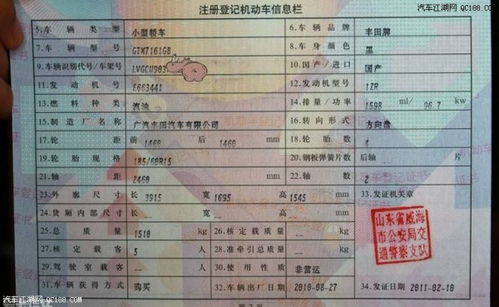 汽车江湖网QC188.COM
注册登记机动车信息栏
5.车辆类型 小型轿车 6.车辆品牌 丰田牌
7.车辆型号 GTM7161GB 8.车身颜色 黑
9.车辆识别代号/车架号 LVGCU903 10.国产/进口 国产
11.发动机号 E663441 12.发动机型号 1ZR
13.燃料种类 汽油 14.排量/功率 1598 ml/ 96.7 kw
15.制造厂名称 广汽丰田汽车有限公司 16.转向形式 方向盘
17.轮距 前 1460 后 1460 mm 18.轮胎数 4
19.轮胎规格 185/60R15 20.钢板弹簧片数 后轴 片
21.轴距 2460 mm 22.轴数 2
23.外廓尺寸 长 3915 宽 1695 高 1545 mm 33.发证机关章
24.货厢内部尺寸 长 宽 高 mm
25.总质量 1510 kg 26.核定载质量 kg
27.核定载客 5 人 28.准牵引总质量 kg
29.驾驶室载客 人 30.使用性质 非营运
31.车辆获得方式 购买 32.车辆出厂日期 2010-08-27 34.发证日期 2011-02-18
山东省威海
市公安局交
通警察支队
汽车江湖网QC188.COM